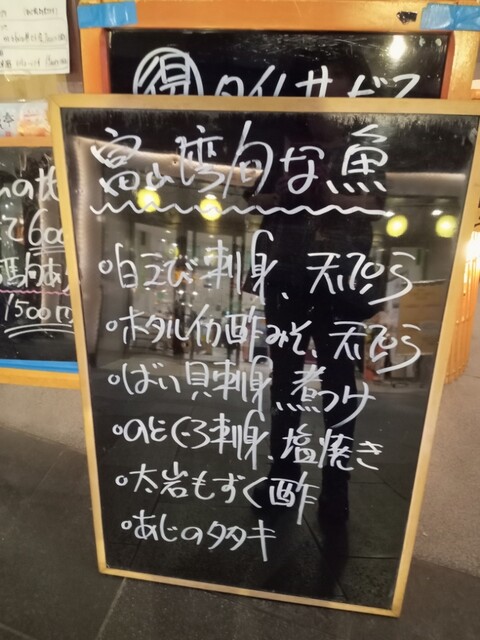 得タイムサービス
富山湾旬な魚
白えび刺身、天ぷら
ホタルイカ酢みそ、天ぷら
ばい貝刺身、煮つけ
のどぐろ刺身、塩焼き
大岩もずく酢
あじのタタキ
600
1500円